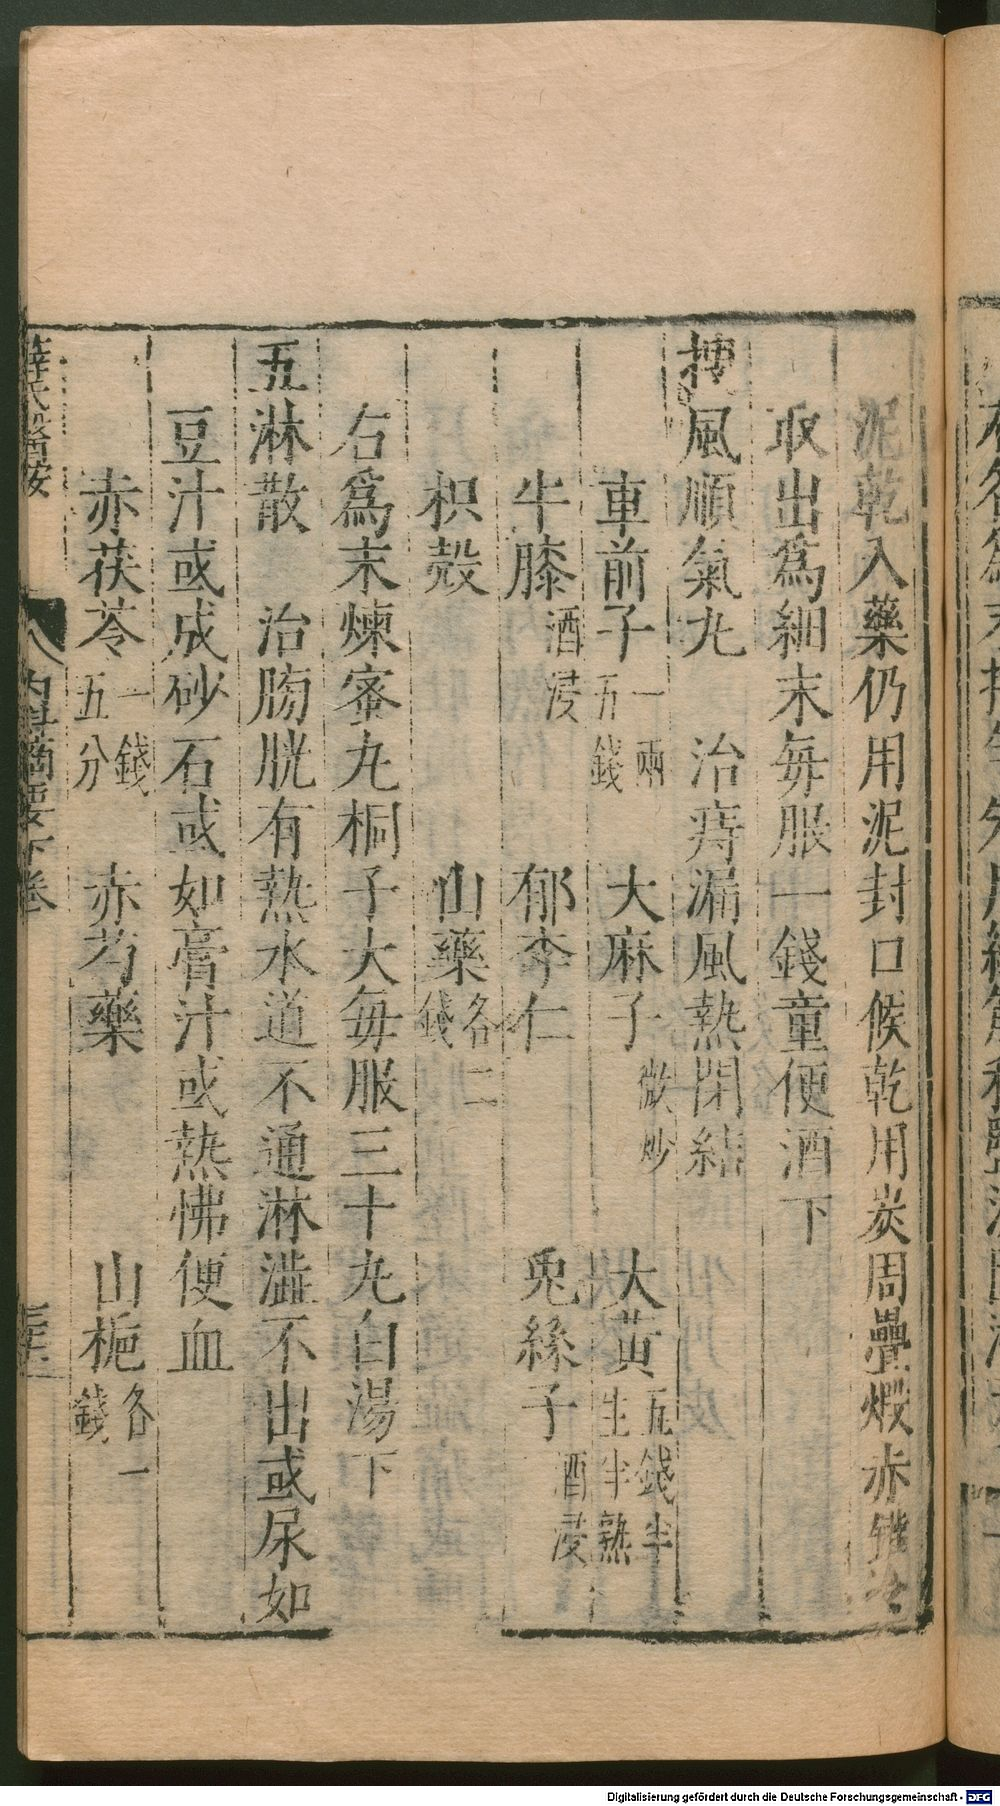 泥乾入藥仍用泥封口候乾用炭周疊煆赤
取出爲細末每服一錢童便酒下
搜風順氣丸　治痔漏風熱閉結
車前子一兩五錢　大麻子微炒　大黄五錢半生半熟
牛膝酒浸　郁李仁　兎絲子酒浸
枳殻　山藥各二錢
右爲末煉蜜丸桐子大每服三十丸白湯下
五淋散　治膀胱有熱水道不通淋澁不出或尿如
豆汁或成砂石或如膏汁或熱怫便血
赤茯苓一錢五分　赤芍藥　山梔各一錢
薛氏醫按　內科摘要下卷
Digitalisierung gefördert durch die Deutsche Forschungsgemeinschaft - DFG